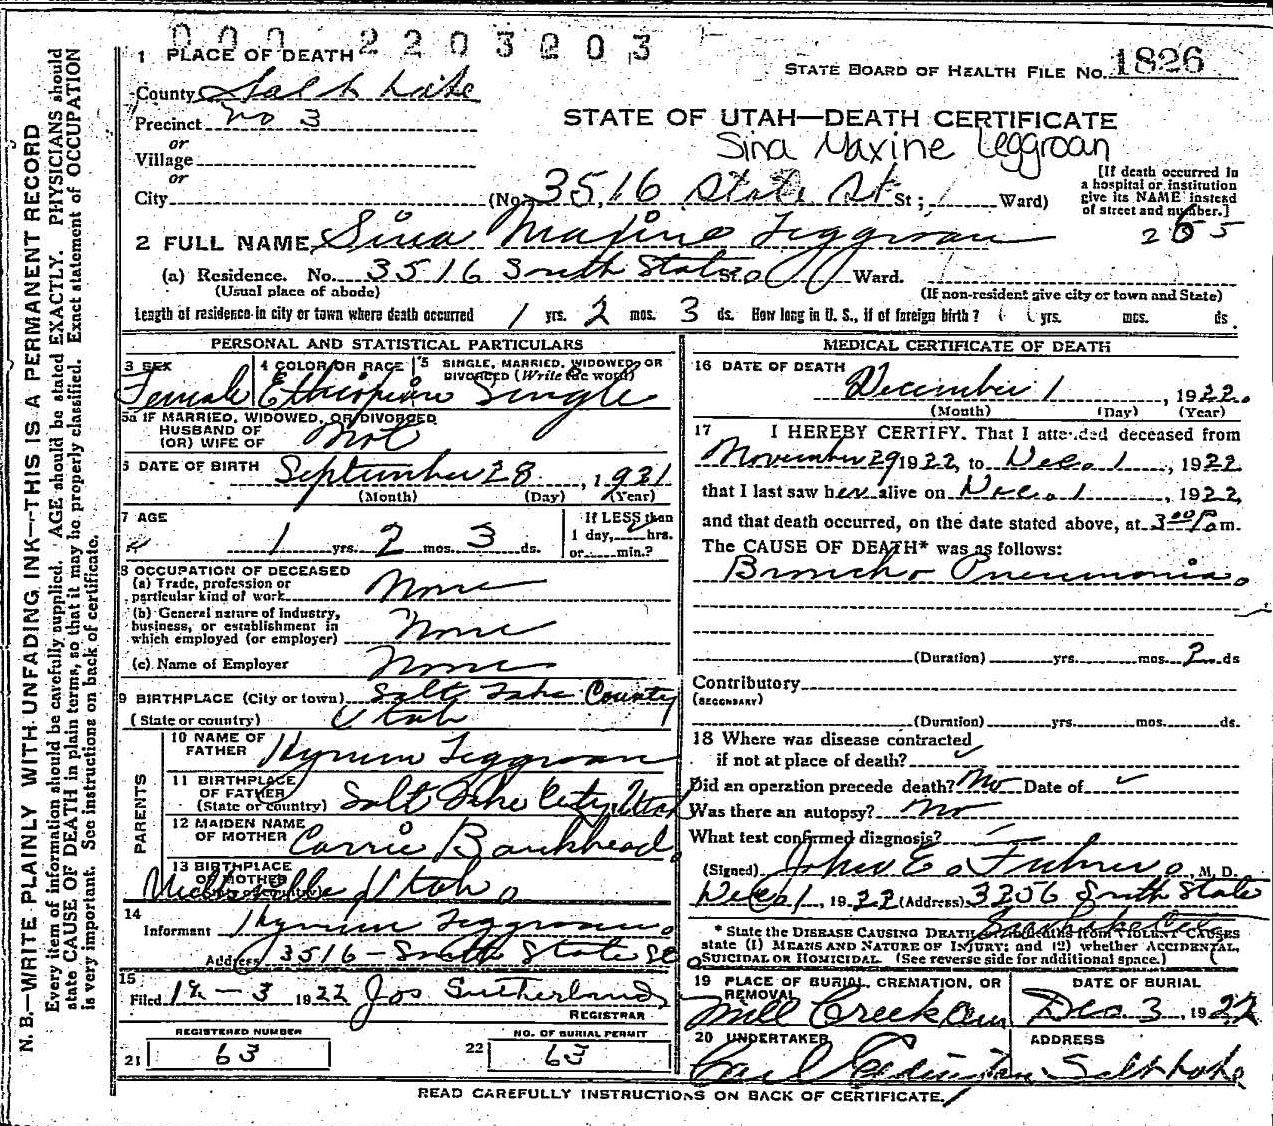 000 2203203
1 PLACE OF DEATH
STATE BOARD OF HEALTH FILE No. 1826
County Salt Lake
Precinct No 3
or
Village
or
City
STATE OF UTAH—DEATH CERTIFICATE
Sina Maxine Leggroan
(No. 3516 State St St; Ward)
[If death occurred in
a hospital or institution
give its NAME instead
of street and number.]
2 FULL NAME Sina Maxine Leggroan
(a) Residence. No. 3516 South State St. Ward.
(Usual place of abode)
(If non-resident give city or town and State)
Length of residence in city or town where death occurred 1 yrs. 2 mos. 3 ds. How long in U. S., if of foreign birth? yrs. mos. ds.
PERSONAL AND STATISTICAL PARTICULARS
3 SEX
Female
4 COLOR OR RACE
Ethiopian
5 SINGLE, MARRIED, WIDOWED, OR
DIVORCED (Write the word)
Single
5a IF MARRIED, WIDOWED, OR DIVORCED
HUSBAND OF
(OR) WIFE OF Not
6 DATE OF BIRTH September 28, 1921
(Month) (Day) (Year)
7 AGE
1 yrs. 2 mos. 3 ds.
If LESS than
1 day, hrs.
or min.?
8 OCCUPATION OF DECEASED
(a) Trade, profession or
particular kind of work None
(b) General nature of industry,
business, or establishment in
which employed (or employer) None
(c) Name of Employer None
9 BIRTHPLACE (City or town) Salt Lake County
(State or country) Utah
PARENTS
10 NAME OF
FATHER Hyrum Leggroan
11 BIRTHPLACE
OF FATHER
(State or country) Salt Lake City, Utah
12 MAIDEN NAME
OF MOTHER Carrie Bankhead
13 BIRTHPLACE
OF MOTHER
(State or country)
Utah
14
Informant Hyrum Leggroan
Address 3516 - South State St
15
Filed 12-3 1922 Jos Sutherland
REGISTRAR
REGISTERED NUMBER
21 63
NO. OF BURIAL PERMIT
22 63
MEDICAL CERTIFICATE OF DEATH
16 DATE OF DEATH
December 1, 1922.
(Month) (Day) (Year)
17 I HEREBY CERTIFY, That I attended deceased from
November 29 1922, to Dec. 1, 1922
that I last saw her alive on Dec. 1, 1922,
and that death occurred, on the date stated above, at 3 00 P. m.
The CAUSE OF DEATH* was as follows:
Broncho Pneumonia.
(Duration) yrs. mos. 2 ds
Contributory
(SECONDARY)
(Duration) yrs. mos. ds.
18 Where was disease contracted
if not at place of death?
Did an operation precede death? No Date of
Was there an autopsy? No
What test confirmed diagnosis?
(Signed) John E. , M. D.
Dec 1, 1922 (Address) 3256 South State
Salt Lake City
* State the DISEASE CAUSING DEATH, or in deaths from VIOLENT CAUSES
state (1) MEANS AND NATURE OF INJURY; and (2) whether ACCIDENTAL,
SUICIDAL or HOMICIDAL. (See reverse side for additional space.)
19 PLACE OF BURIAL, CREMATION, OR
REMOVAL
Mill Creek Cem
DATE OF BURIAL
Dec 3, 1922
20 UNDERTAKER
ADDRESS
Salt Lake
READ CAREFULLY INSTRUCTIONS ON BACK OF CERTIFICATE.
N. B.—WRITE PLAINLY WITH UNFADING INK—THIS IS A PERMANENT RECORD
Every item of information should be carefully supplied. AGE should be stated EXACTLY. PHYSICIANS should
state CAUSE OF DEATH in plain terms, so that it may be properly classified. Exact statement of OCCUPATION
is very important. See instructions on back of certificate.